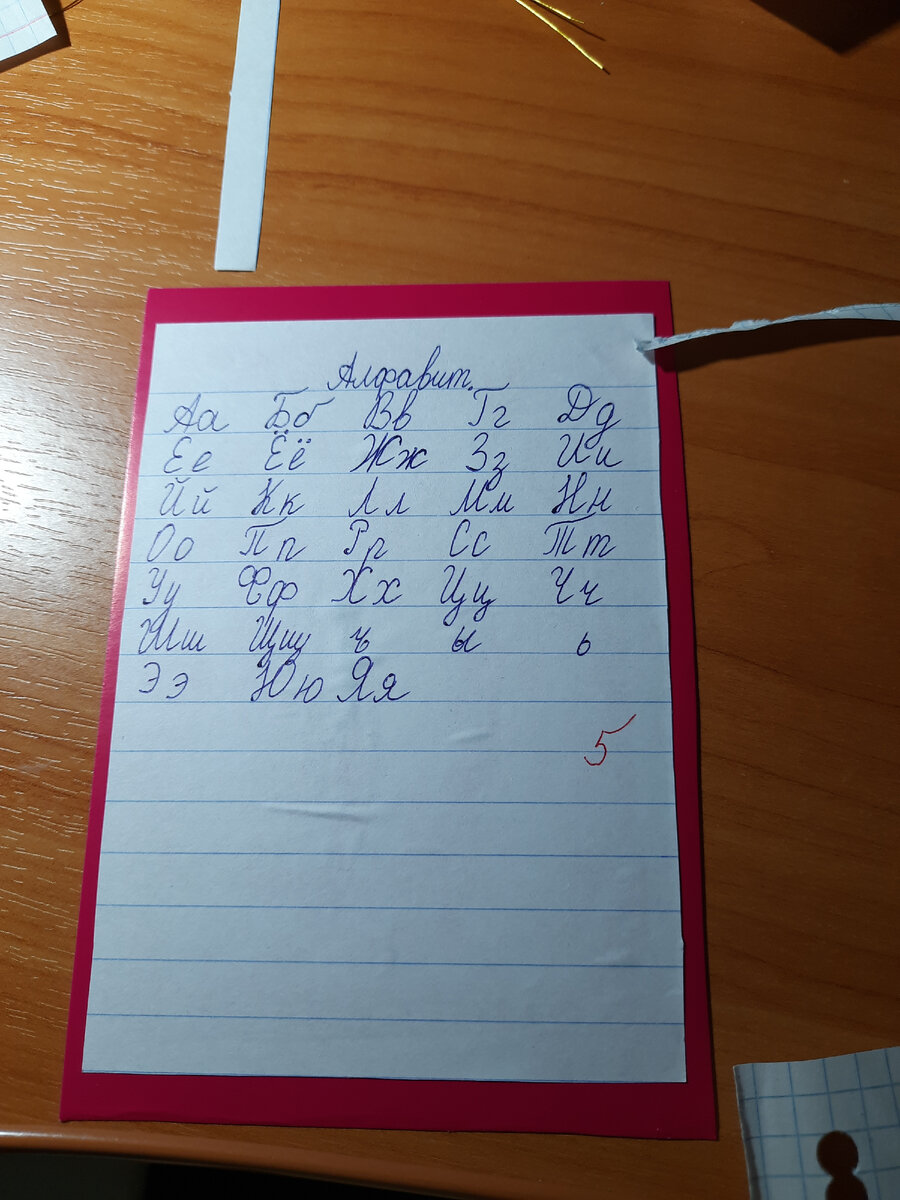 Алфавит.
Аа Бб Вв Гг Дд
Ее Ёё Жж Зз Ии
Йй Кк Лл Мм Нн
Оо Пп Рр Сс Тт
Уу Фф Хх Цц Чч
Шш Щщ ъ ы ь
Ээ Юю Яя
5